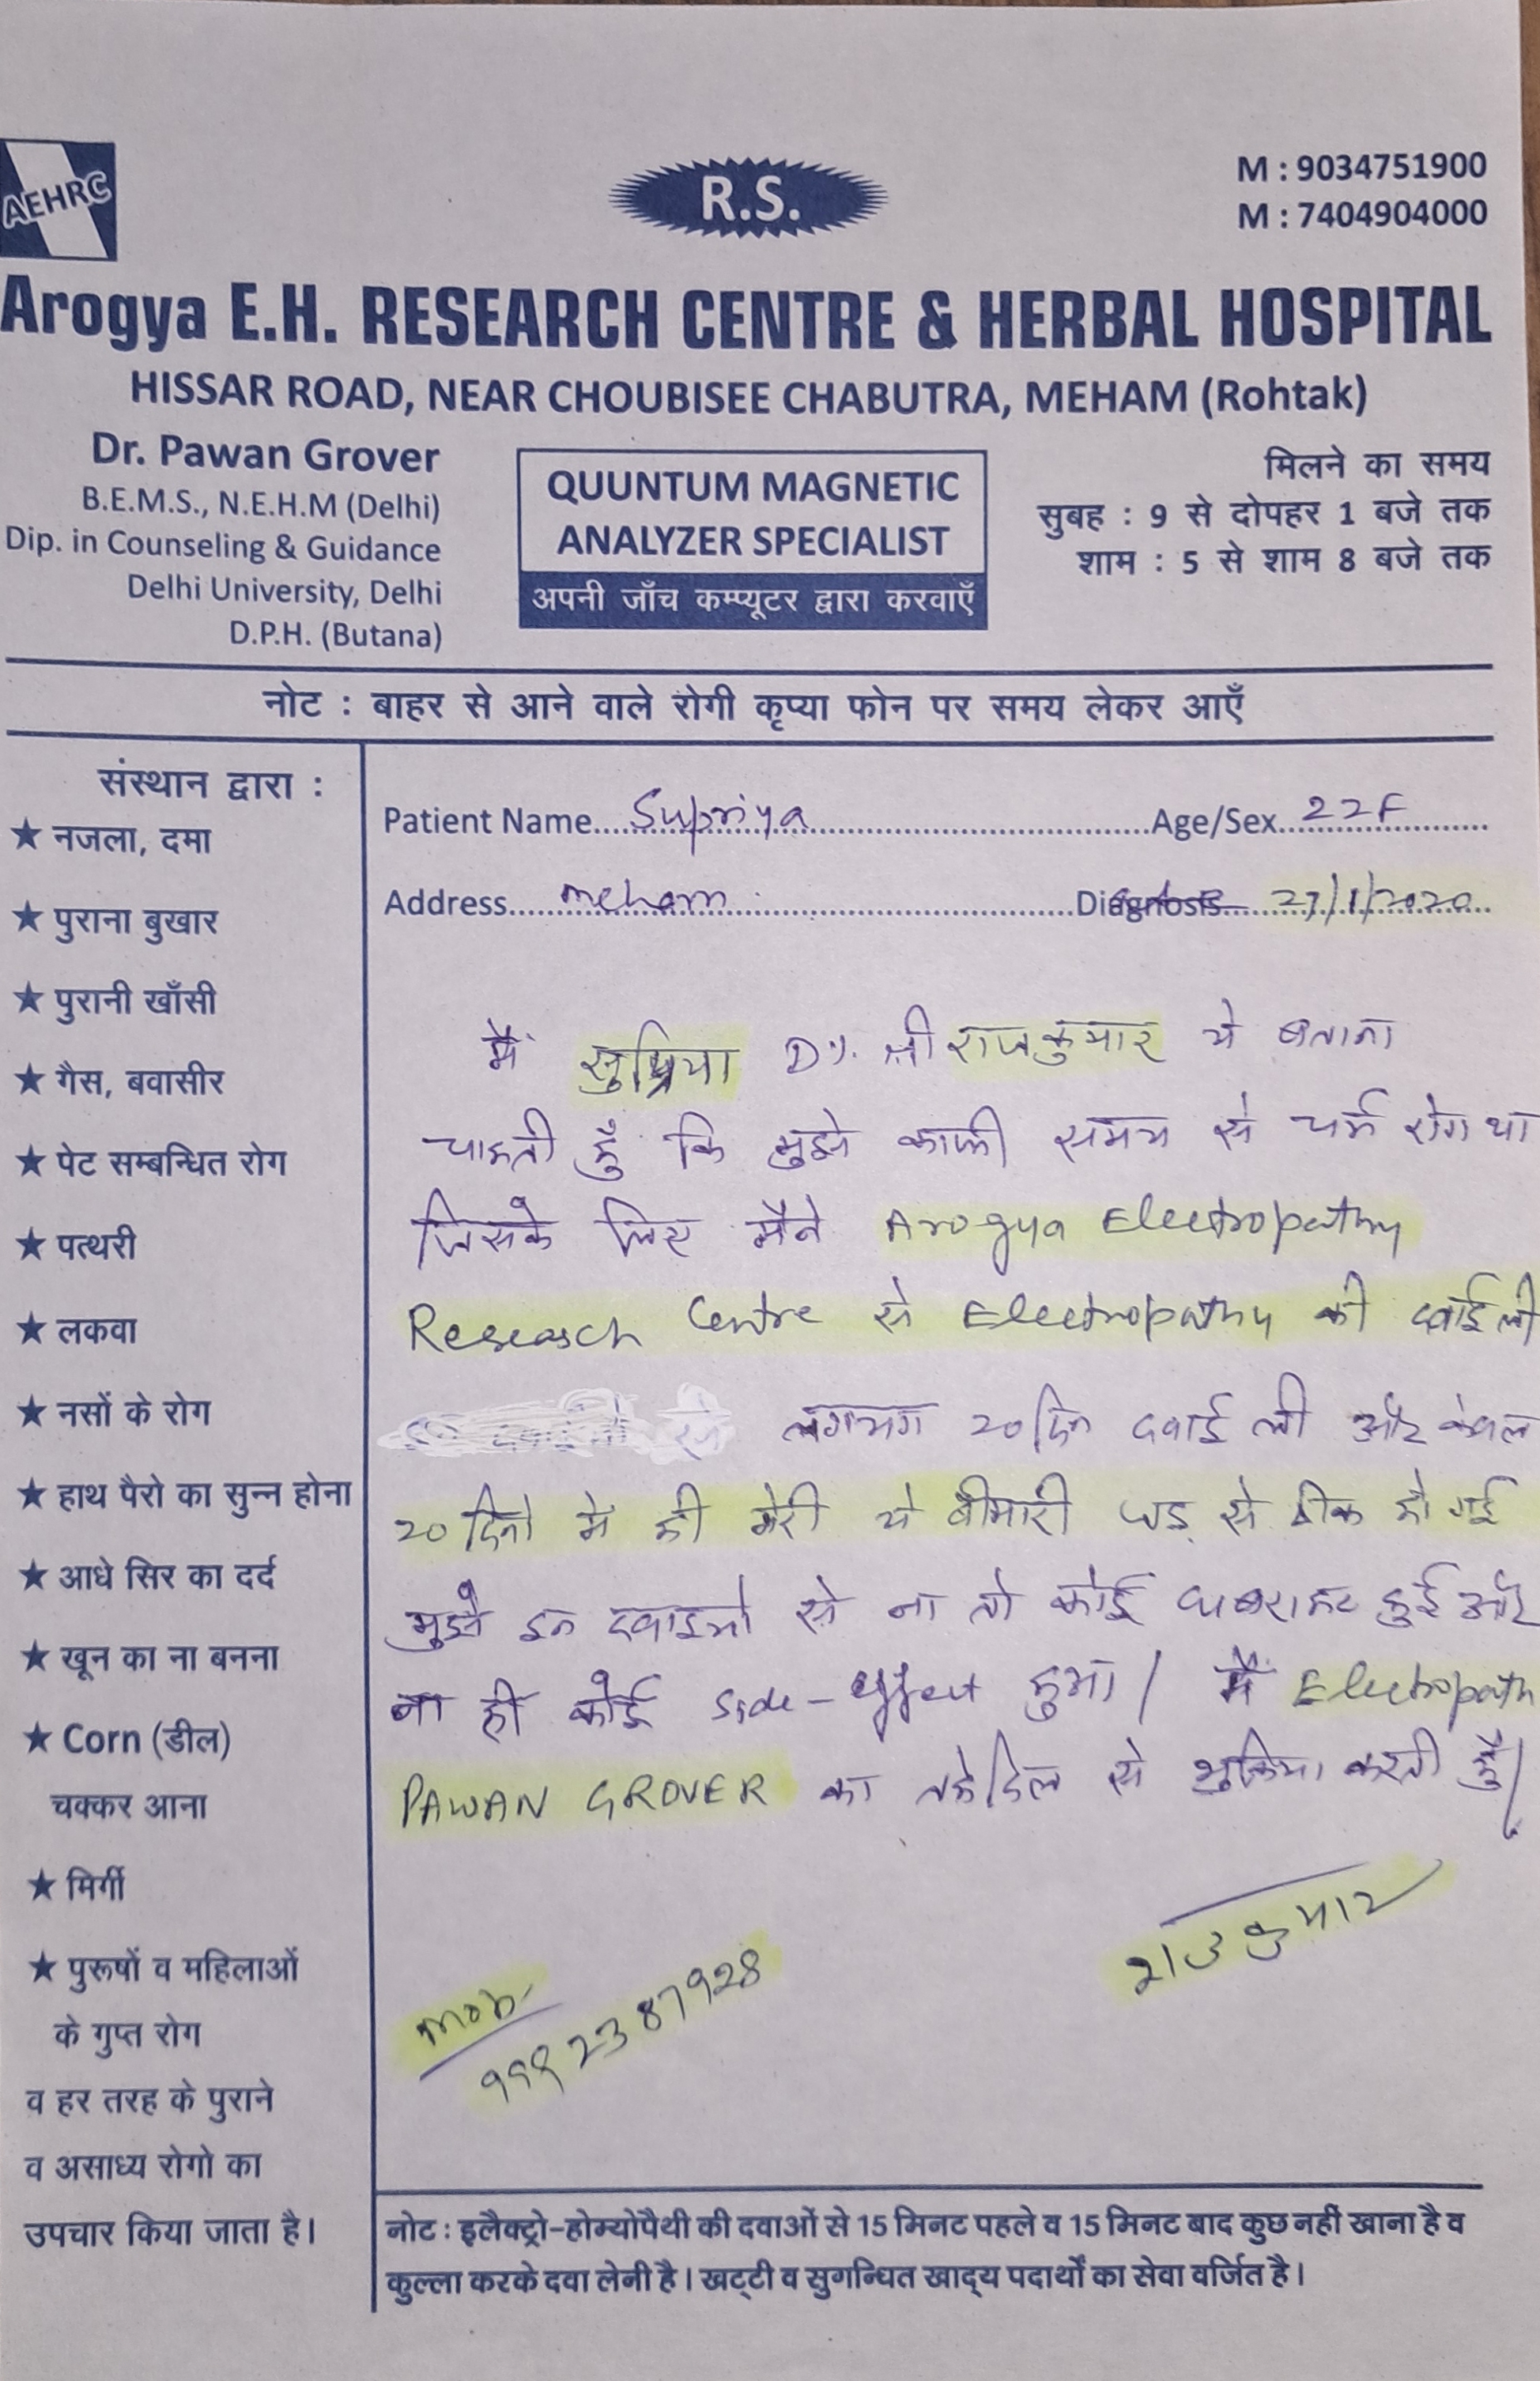 AEHRC
R.S.
M : 9034751900
M : 7404904000
Arogya E.H. RESEARCH CENTRE & HERBAL HOSPITAL
HISSAR ROAD, NEAR CHOUBISEE CHABUTRA, MEHAM (Rohtak)
Dr. Pawan Grover
B.E.M.S., N.E.H.M (Delhi)
Dip. in Counseling & Guidance
Delhi University, Delhi
D.P.H. (Butana)
QUUNTUM MAGNETIC
ANALYZER SPECIALIST
अपनी जाँच कम्प्यूटर द्वारा करवाएँ
मिलने का समय
सुबह : 9 से दोपहर 1 बजे तक
शाम : 5 से शाम 8 बजे तक
नोट : बाहर से आने वाले रोगी कृप्या फोन पर समय लेकर आएँ
संस्थान द्वारा :
★ नजला, दमा
★ पुराना बुखार
★ पुरानी खाँसी
★ गैस, बवासीर
★ पेट सम्बन्धित रोग
★ पत्थरी
★ लकवा
★ नसों के रोग
★ हाथ पैरो का सुन्न होना
★ आधे सिर का दर्द
★ खून का ना बनना
★ Corn (डील)
चक्कर आना
★ मिर्गी
★ पुरूषों व महिलाओं
के गुप्त रोग
व हर तरह के पुराने
व असाध्य रोगो का
उपचार किया जाता है।
Patient Name Supriya Age/Sex 22F
Address meham Diagnosis 27/1/2020
मैं सुप्रिया D/. श्री राजकुमार ये बताना
चाहती हूँ कि मुझे काफी समय से चर्म रोग था
जिसके लिए मैने Arogya Electropathy
Research Centre से Electropathy की दवाई ली
लगभग 20 दिन दवाई ली और केवल
20 दिनो मे ही मेरी ये बीमारी जड़ से ठीक हो गई
मुझे इन दवाइयो से ना तो कोई घबराहट हुई और
ना ही कोई side-effect हुआ। मैं Electropath
PAWAN GROVER का तहेदिल से शुक्रिया करती हूँ।
राजकुमार
mob-
9992387928
नोट : इलैक्ट्रो-होम्योपैथी की दवाओं से 15 मिनट पहले व 15 मिनट बाद कुछ नहीं खाना है व
कुल्ला करके दवा लेनी है। खट्टी व सुगन्धित खाद्य पदार्थों का सेवा वर्जित है।